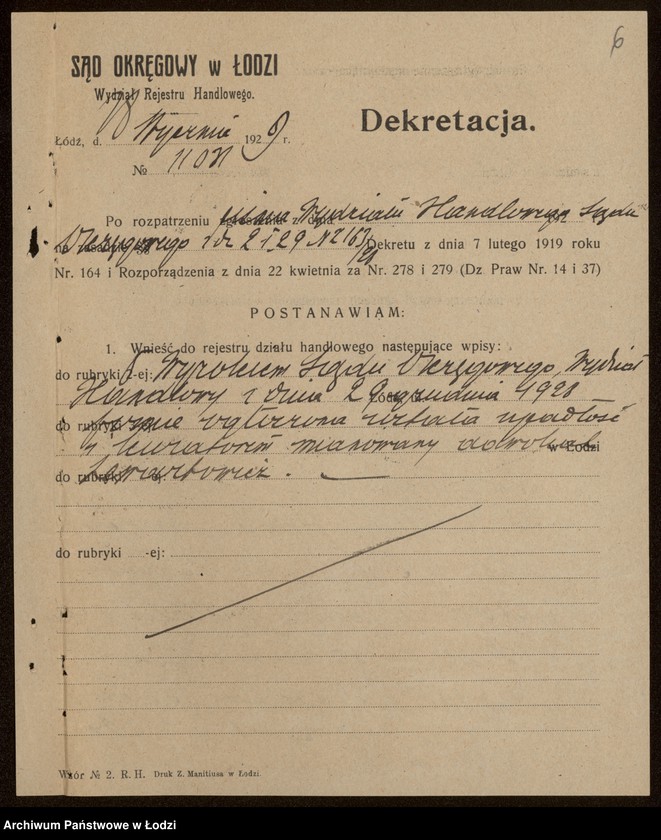 6
SĄD OKRĘGOWY w ŁODZI
Wydział Rejestru Handlowego.
Dekretacja.
Łódź, d. Stycznia 1929 r.
№
Po rozpatrzeniu zgłoszenia z dnia pisma Wydziału Handlowego Sądu
na zasadzie §§ Okręgowego z dn 2 I 29 N 2163/28 Dekretu z dnia 7 lutego 1919 roku
Nr. 164 i Rozporządzenia z dnia 22 kwietnia za Nr. 278 i 279 (Dz Praw Nr. 14 i 37)
POSTANAWIAM:
1. Wnieść do rejestru działu handlowego następujące wpisy:
do rubryki 6-ej: Wyrokiem Sądu Okręgowego, Wydział
Handlowy z dnia 29 grudnia 1928
do rubryki firmie ogłoszona została upadłość
i kuratorem mianowany adwokat
w Łodzi
do rubryki
do rubryki -ej:
Wzór № 2. R. H. Druk Z. Manitiusa w Łodzi.
Archiwum Państwowe w Łodzi